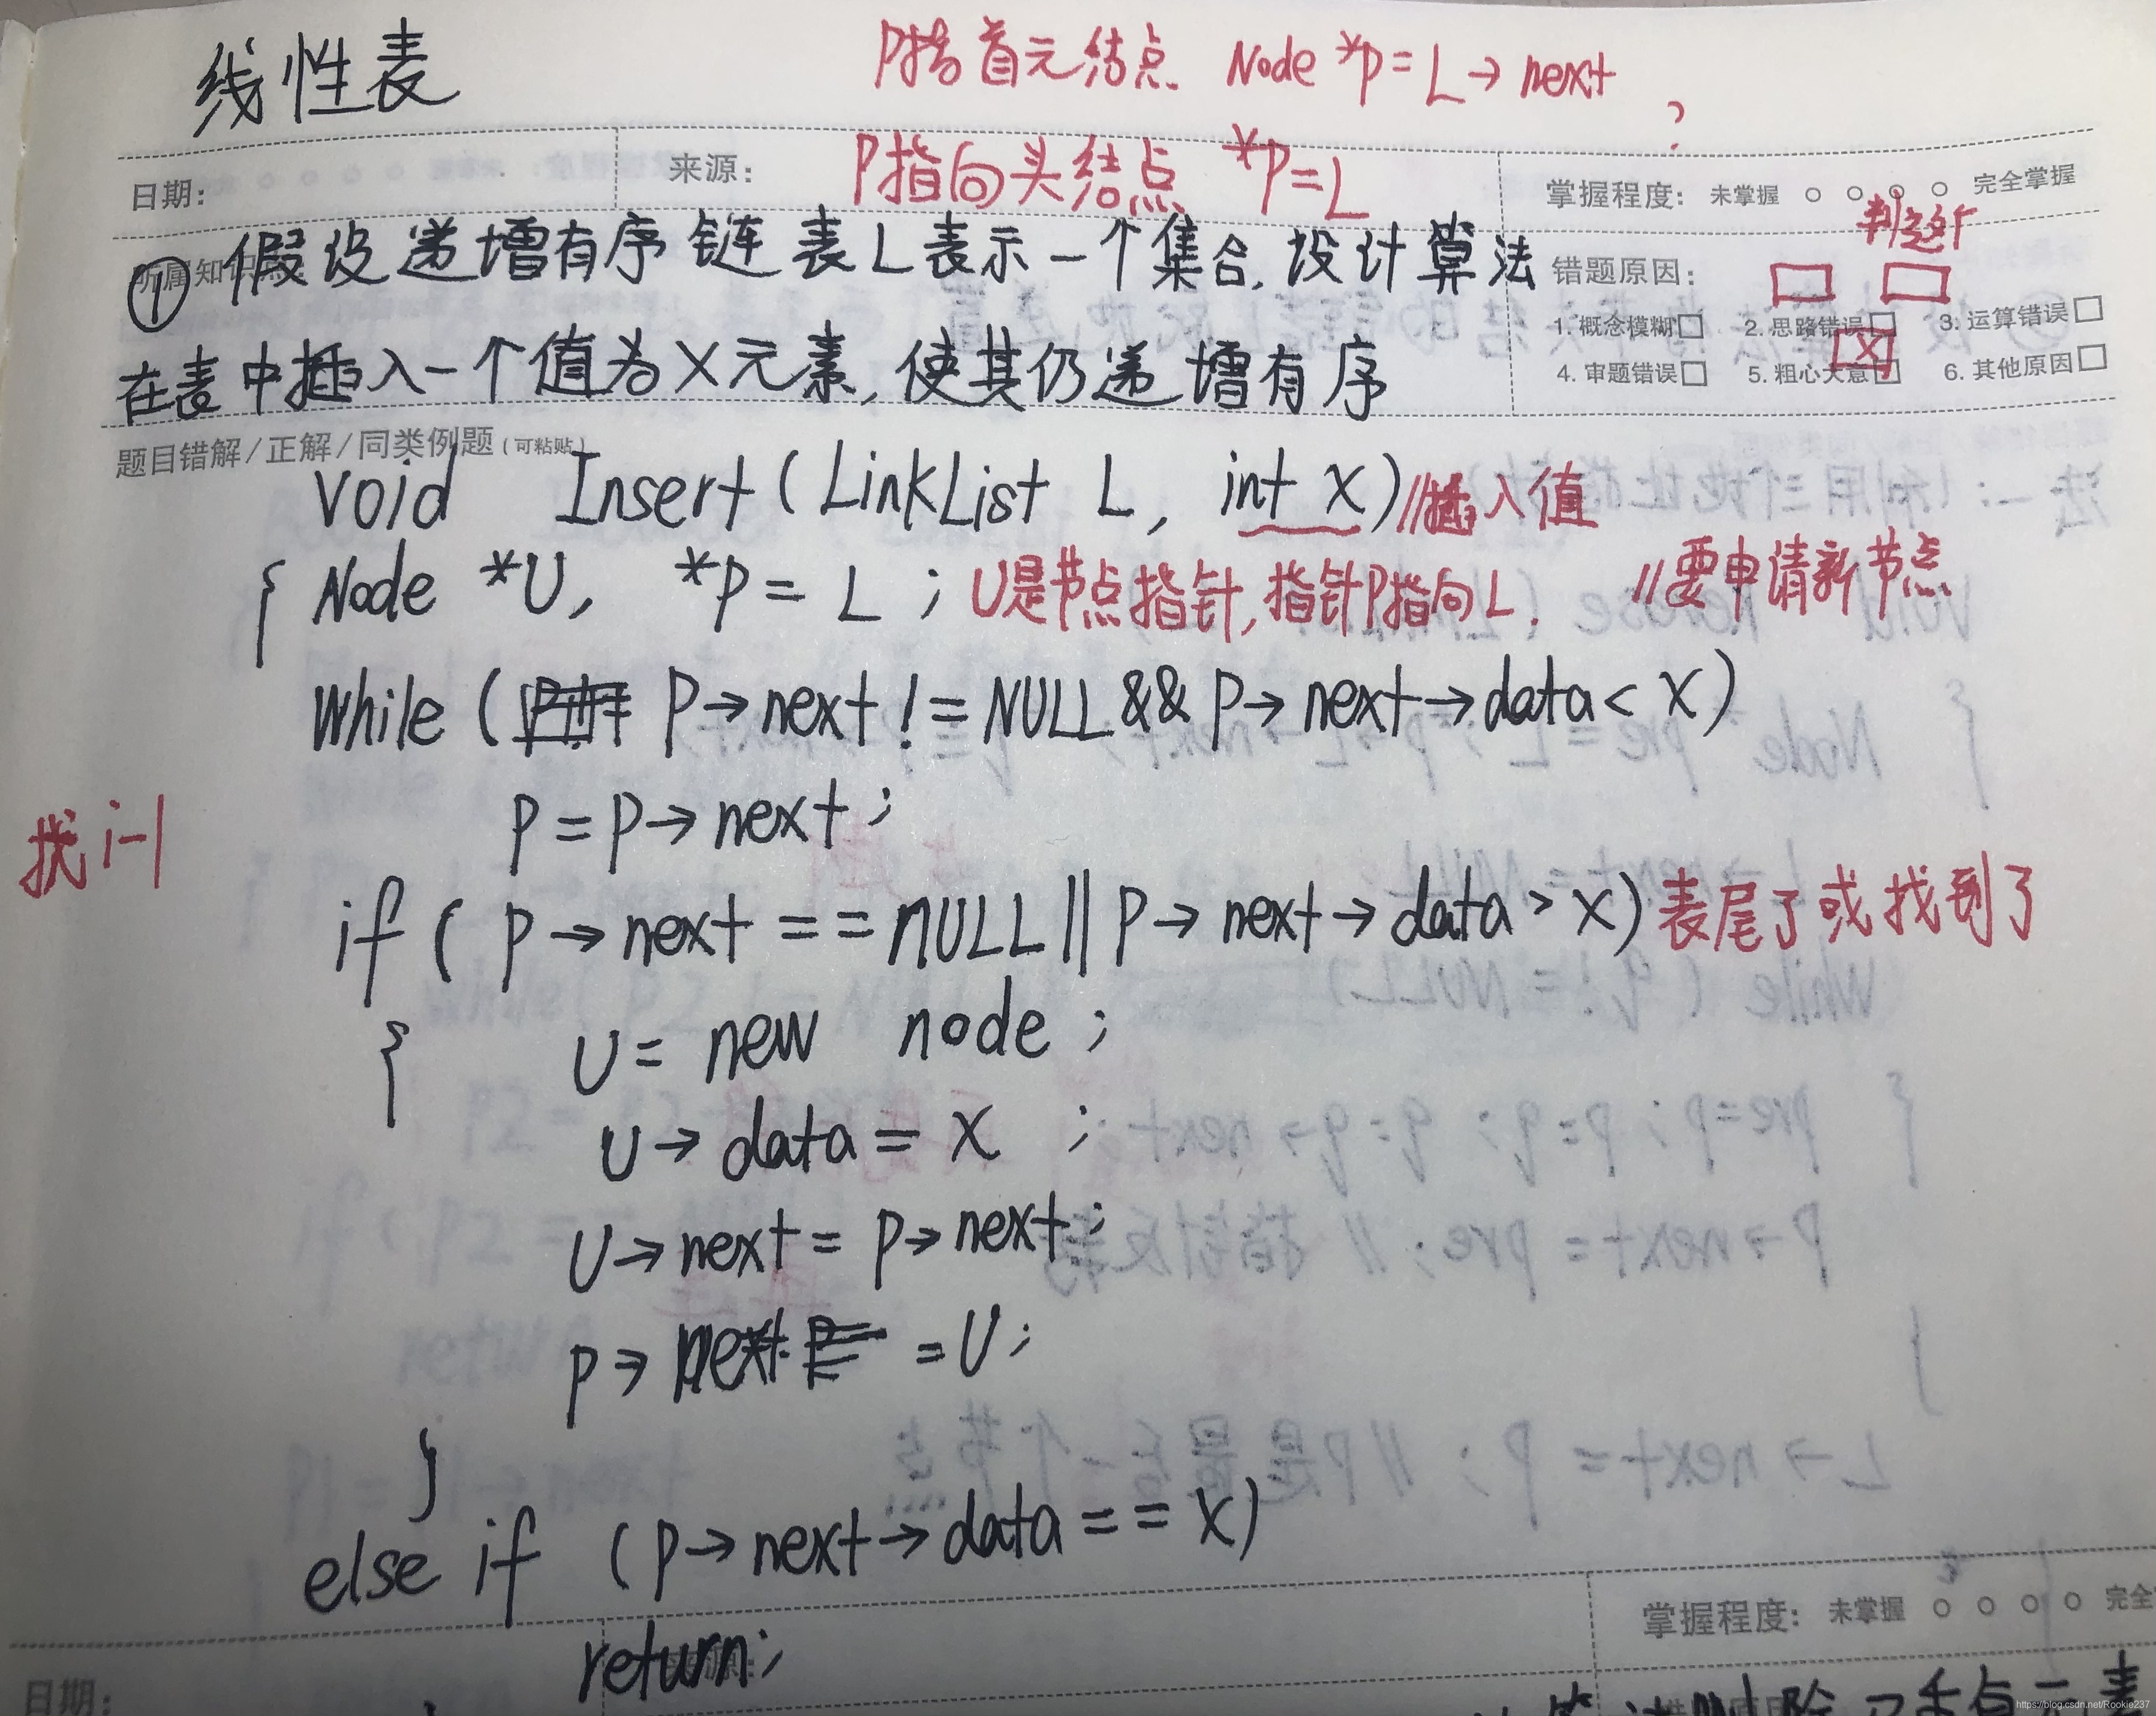 线性表
P指首元结点 Node *p = L → next
?
日期:
来源:
P指向头结点 *P=L
掌握程度: 未掌握 ○ ○ ○ ○ 完全掌握
① 假设递增有序链表L表示一个集合,设计算法
错题原因:
1. 概念模糊□ 2. 思路错误□ 3. 运算错误□
在表中插入一个值为X元素,使其仍递增有序
4. 审题错误□ 5. 粗心大意□ 6. 其他原因□
题目错解/正解/同类例题(可粘贴)
void Insert (LinkList L, int x) //插入值
{ Node *U, *P = L ; U是节点指针,指针P指向L. //要申请新节点
While ( P→next != NULL && P→next→data < X )
P = P→next ;
找 i-1
if ( P→next == nULL || P→next→data > x ) 表尾了或找到了
{ U = new node ;
U→data = x ;
U→next = P→next ;
p→next = U ;
}
else if (p→next→data == x)
掌握程度: 未掌握 ○ ○ ○ ○ 完全
return;
日期:
https://blog.csdn.net/Rookie237